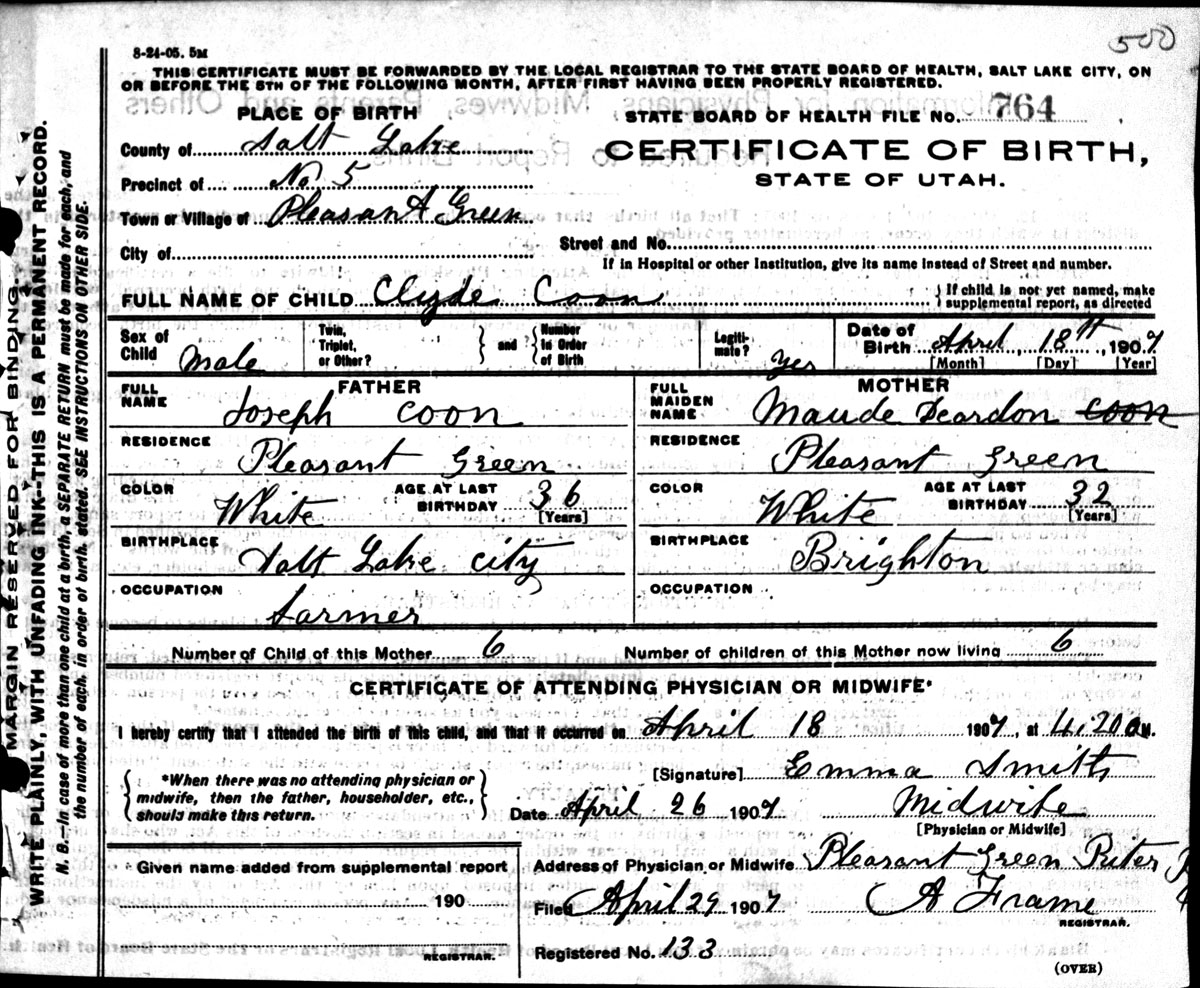 500
8-24-05. 5M
THIS CERTIFICATE MUST BE FORWARDED BY THE LOCAL REGISTRAR TO THE STATE BOARD OF HEALTH, SALT LAKE CITY, ON
OR BEFORE THE 5TH OF THE FOLLOWING MONTH, AFTER FIRST HAVING BEEN PROPERLY REGISTERED.
MARGIN RESERVED FOR BINDING.
WRITE PLAINLY, WITH UNFADING INK--THIS IS A PERMANENT RECORD.
N. B.--In case of more than one child at a birth, a SEPARATE RETURN must be made for each, and
the number of each, in order of birth, stated. SEE INSTRUCTIONS ON OTHER SIDE.
PLACE OF BIRTH
STATE BOARD OF HEALTH FILE No. 764
County of Salt Lake
CERTIFICATE OF BIRTH,
Precinct of No 5
STATE OF UTAH.
Town or Village of Pleasant Green
City of
Street and No.
If in Hospital or other Institution, give its name instead of Street and number.
FULL NAME OF CHILD Clyde Coon
If child is not yet named, make
supplemental report, as directed
Sex of Child Male
Twin, Triplet, or Other?
and
Number in Order of Birth
Legiti-mate? Yes
Date of Birth April, 18th, 1907
[Month] [Day] [Year]
FATHER
MOTHER
FULL NAME Joseph Coon
FULL MAIDEN NAME Maude Deardon Coon
RESIDENCE Pleasant Green
RESIDENCE Pleasant Green
COLOR White AGE AT LAST BIRTHDAY 36 [Years]
COLOR White AGE AT LAST BIRTHDAY 32 [Years]
BIRTHPLACE Salt Lake City
BIRTHPLACE Brighton
OCCUPATION farmer
OCCUPATION
Number of Child of this Mother 6
Number of children of this Mother now living 6
CERTIFICATE OF ATTENDING PHYSICIAN OR MIDWIFE*
I hereby certify that I attended the birth of this child, and that it occurred on April 18 1907, at 4:20 a M.
*When there was no attending physician or
midwife, then the father, householder, etc.,
should make this return.
[Signature] Emma Smith
Date April 26 1907 Midwife
[Physician or Midwife]
Given name added from supplemental report
190
REGISTRAR.
Address of Physician or Midwife Pleasant Green Puter
Filed April 29 1907 A Frame
REGISTRAR.
Registered No. 133
(OVER)